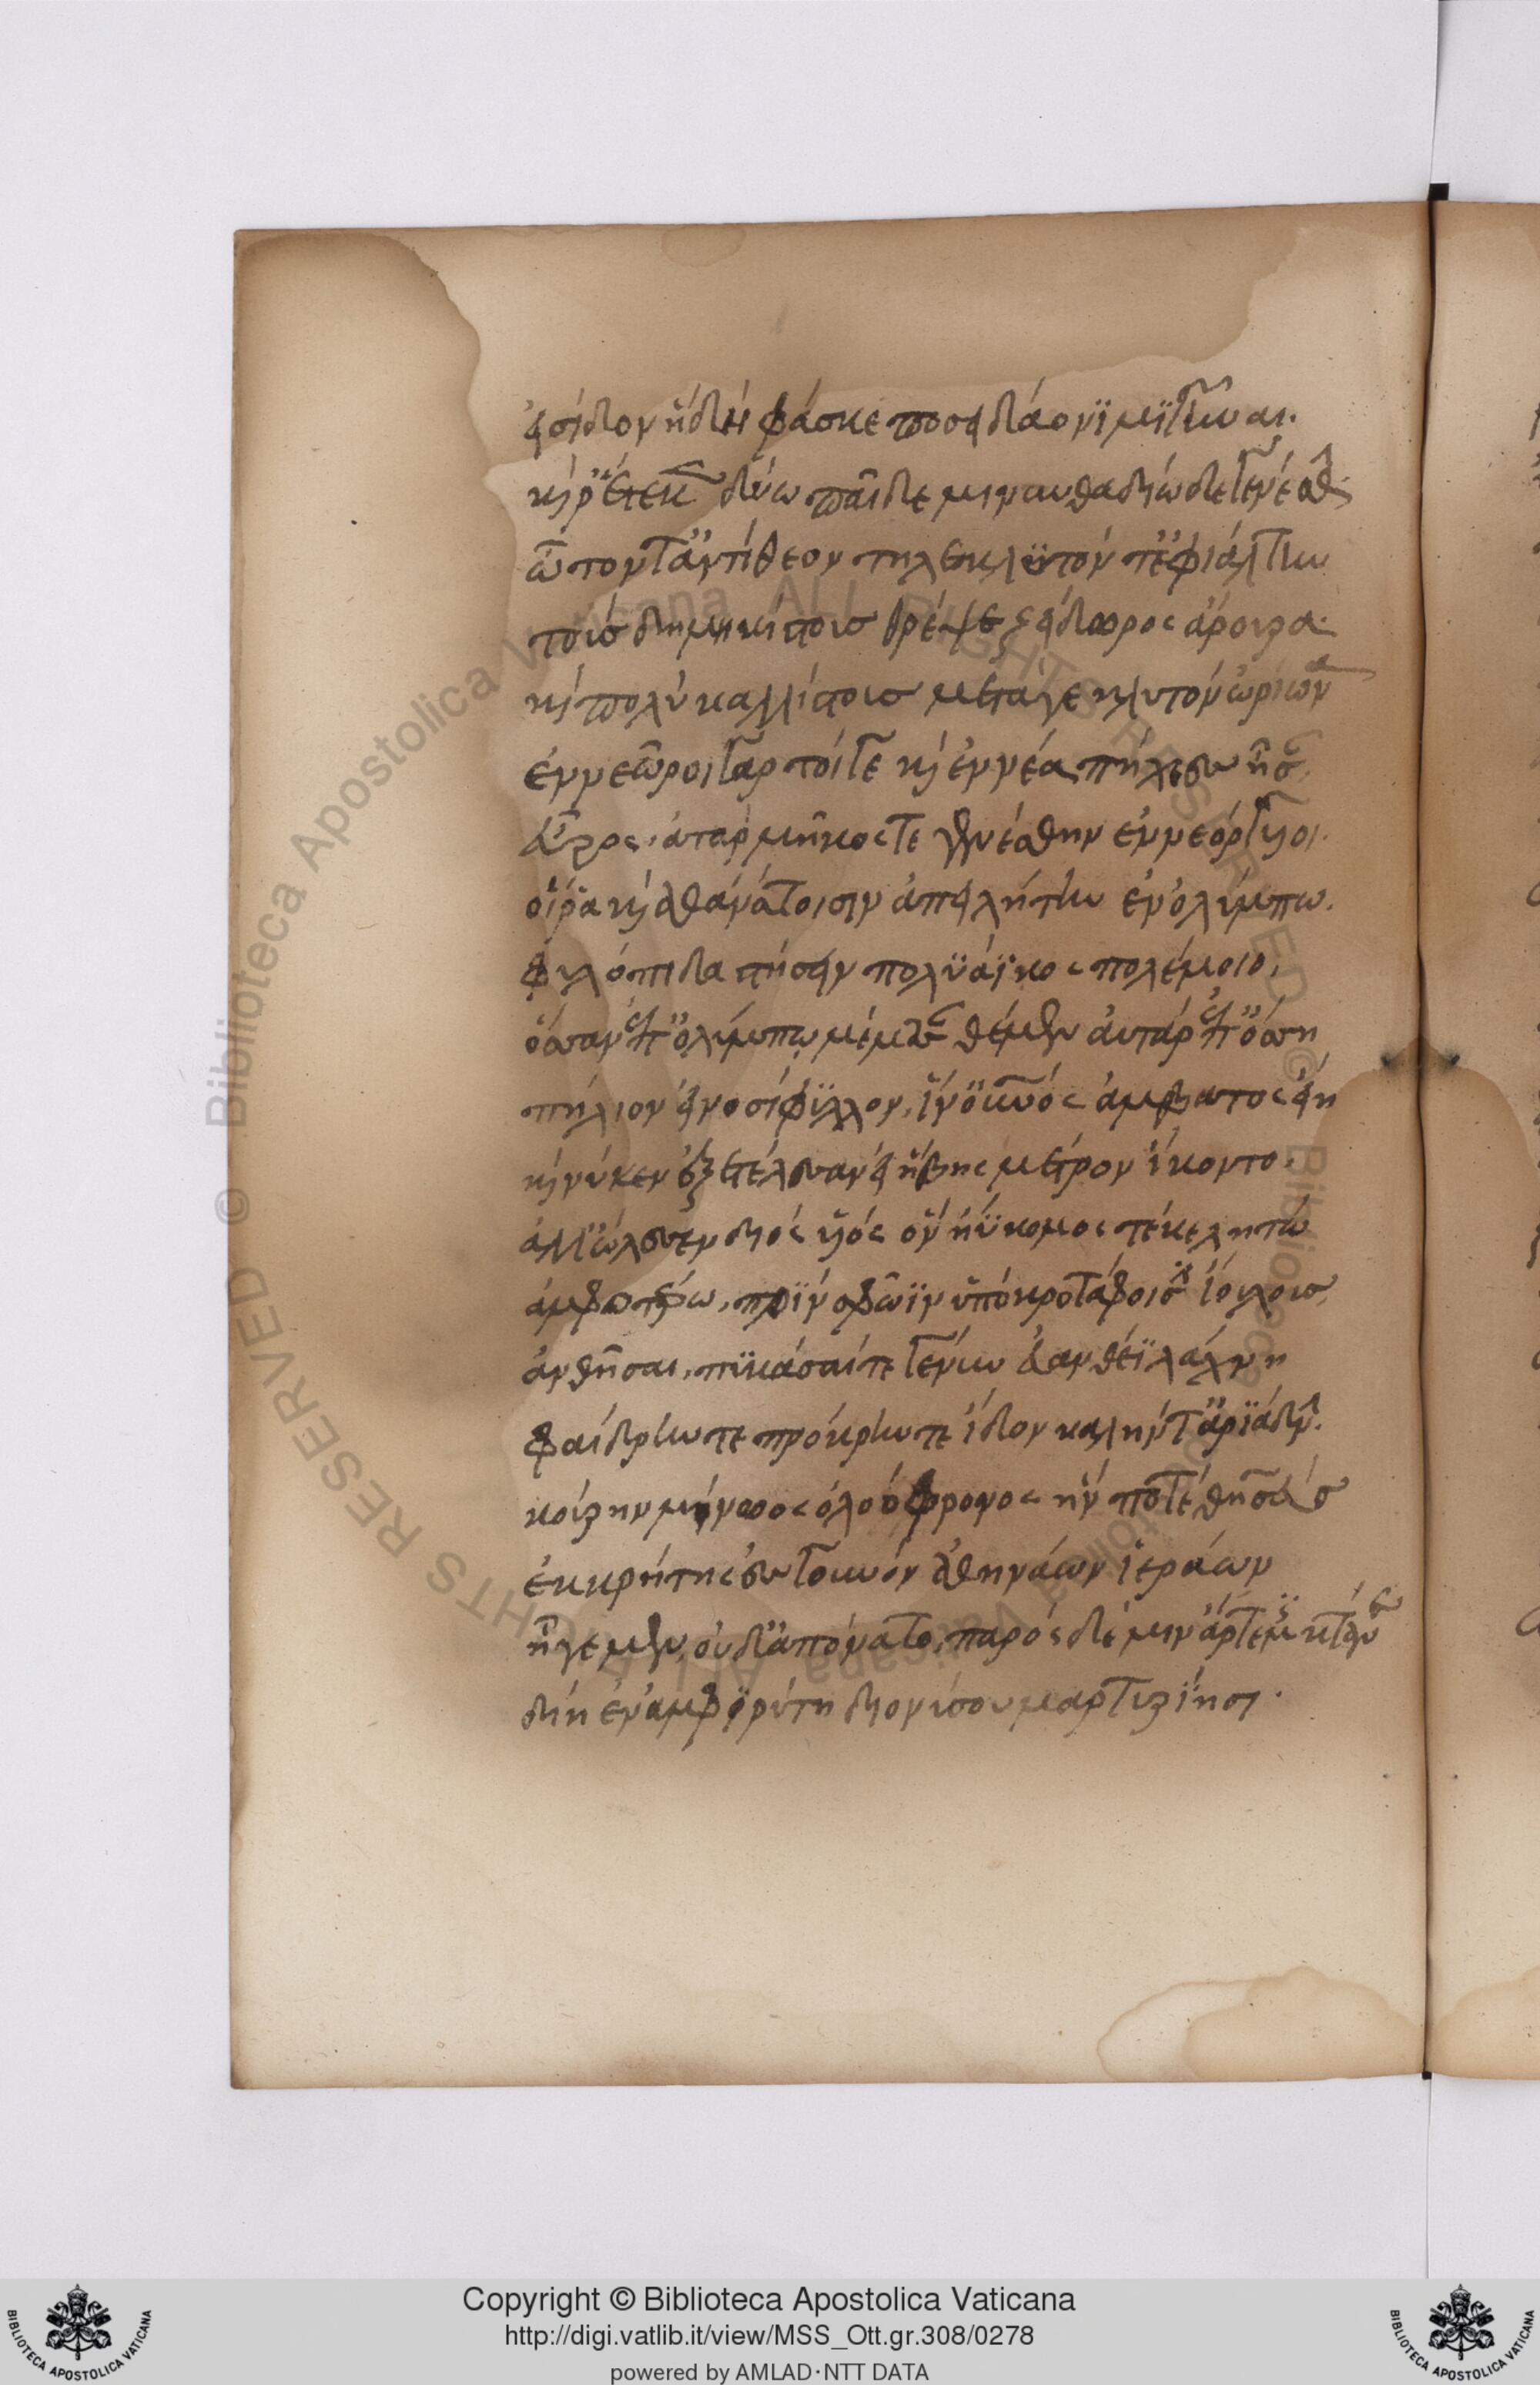 εἴσιδον ἣ δὴ φάσκε ποσειδάονι μιγῆναι.
καί ῥ' ἔτεκεν δύω παῖδε μινυνθαδίω δὲ γενέσθην.
ὦτόν τ' ἀντίθεον τηλεκλυτόν τ' ἐφιάλτην
τοὺς δὴ μηκίστους θρέψε ζείδωρος ἄρουρα.
καὶ πολὺ καλλίστους μετά γε κλυτὸν ὠρίωνα
ἐννέωροι γὰρ τοί γε καὶ ἐννέα πήχεες ἦσαν
εὖρος. ἀτὰρ μῆκός γε γενέσθην ἐννεόργυιοι.
οἵ ῥα καὶ ἀθανάτοισιν ἀπειλήτην ἐν ὀλύμπω.
φυλόπιδα στήσειν πολυάϊκος πολέμοιο.
ὄσσαν ἐπ' ὀλύμπῳ μέμασαν θέμεν αὐτὰρ ἐπ' ὄσση
πήλιον εἰνοσίφυλλον, ἵν' οὐρανὸς ἀμβατὸς εἴη
καί νύ κεν ἐξετέλεσσαν εἰ ἥβης μέτρον ἵκοντο.
ἀλλ' ὤλεσεν διὸς υἱός ὃν ἠΰκομος τέκε λητὼ
ἀμφοτέρω, πρίν σφωϊν ὑπὸ κροτάφοισιν ἰούλους
ἀνθῆσαι, πυκάσαι τε γένυν εὐανθέϊ λάχνη
φαίδρην τε πρόκριν τε ἴδον καλήν τ' ἀριάδνην.
κούρην μίνωος ὀλοόφρονος ἥν ποτε θησεὺς
ἐκ κρήτης ἐς γουνὸν ἀθηνάων ἱεράων
ἦγε μὲν, οὐδ' ἀπόνατο, πάρος δέ μιν ἄρτεμις ἔκτανεν
δίη ἐν ἀμφιρύτη διονύσου μαρτυρίησι.
Copyright © Biblioteca Apostolica Vaticana
http://digi.vatlib.it/view/MSS_Ott.gr.308/0278
powered by AMLAD·NTT DATA